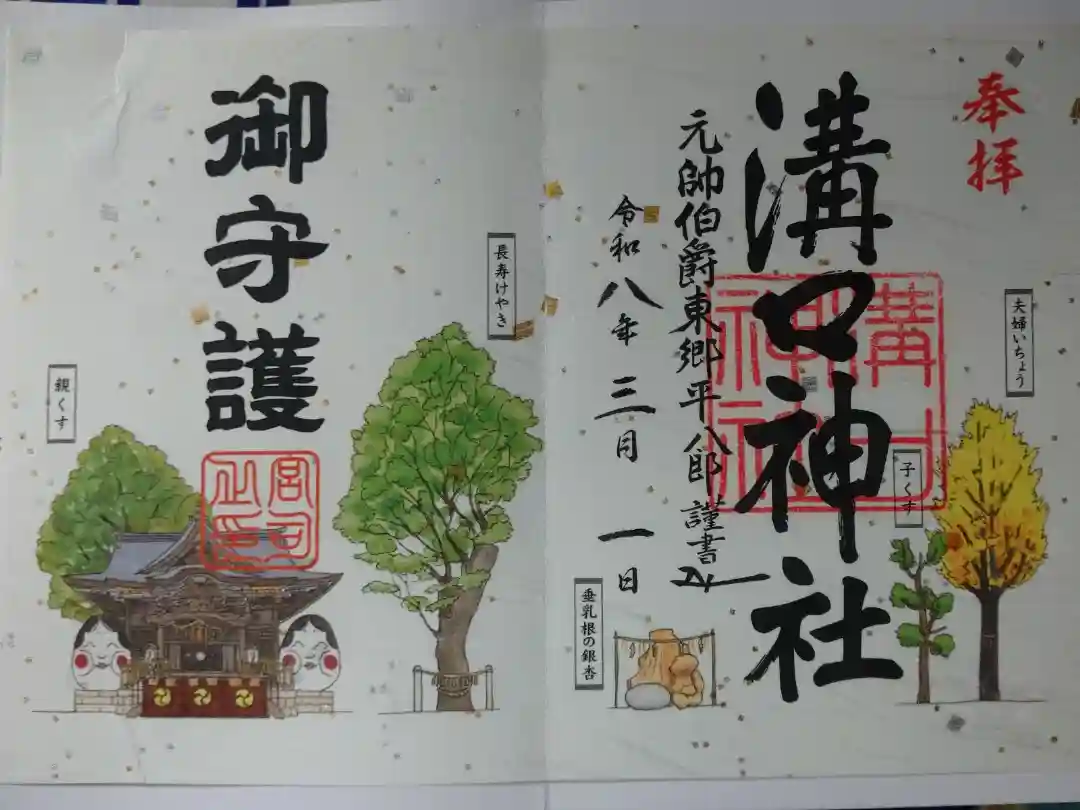 奉拝
夫婦いちょう
溝口神社
溝口
神社
子くす
元帥伯爵東郷平八郎 謹書
令和八年 三月 一日
垂乳根の銀杏
長寿けやき
御守護
宮司
之印
親くす